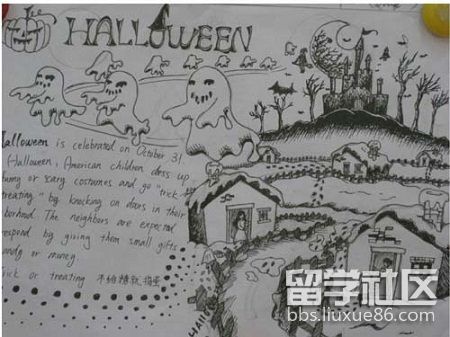 HALLOWEEN
Halloween is celebrated on October 31.
Halloween, American children dress up
funny or scary costumes and go "trick
treating" by knocking on doors in their
borhood. The neighbors are expected
respond by giving them small gifts
candy or money.
Trick or treating 不给糖就捣蛋
留学社区
bbs.liuxue86.com